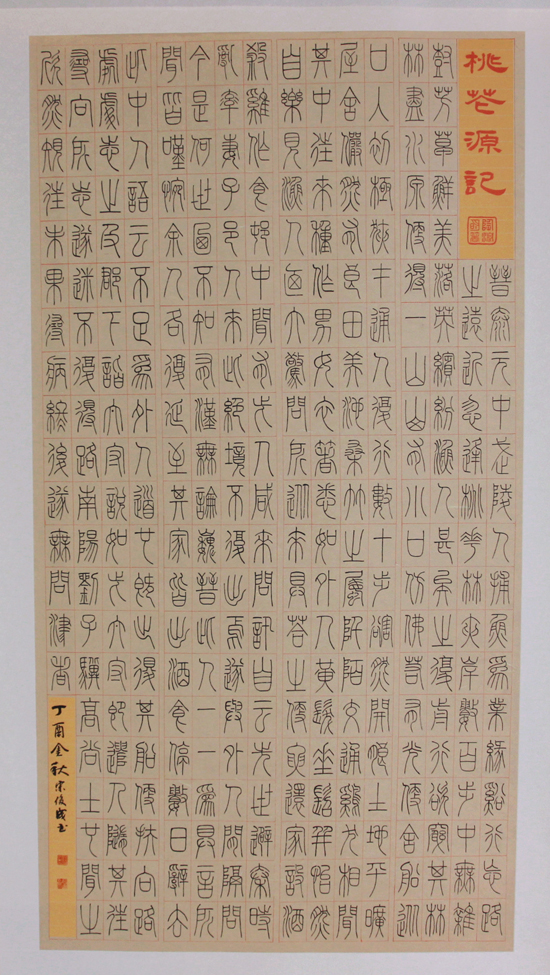 桃花源記
晉泰元中武陵人捕魚為業緣谿行忘路
之遠近忽逢桃華林夾岸數百步中無雜
樹芳草鮮美落英繽紛漁人甚異之復前行欲窮其林
林盡水原便得一山山有小口仿佛若有光便舍船從
口入初極狹才通人復行數十步豁然開朗土地平曠
屋舍儼然有良田美池桑竹之屬阡陌交通雞犬相聞
其中往來種作男女衣著悉如外人黃髮垂髫并怡然
自樂見漁人乃大驚問所從來具答之便要還家設酒
殺雞作食村中聞有此人咸來問訊自云先世避秦時
亂率妻子邑人來此絕境不復出焉遂與外人間隔問
今是何世乃不知有漢無論魏晉此人一一為具言所
聞皆嘆惋余人各復延至其家皆出酒食停數日辭去
此中人語云不足為外人道也既出得其船便扶向路
處處志之及郡下詣太守說如此太守即遣人隨其往
尋向所志遂迷不復得路南陽劉子驥高尚士也聞之
欣然規往未果尋病終後遂無問津者
丁酉金秋宗俊成书